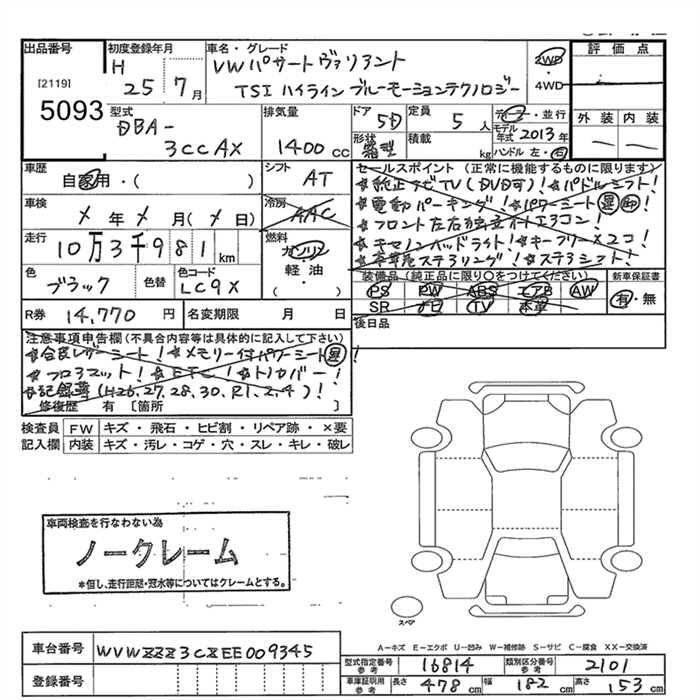 出品番号
[2119]
5093
初度登録年月
H 25年 7月
車名・グレード
VWパサートヴァリアント
TSI ハイライン ブルーモーションテクノロジー
2WD・4WD
評価点
外装 内装
型式
DBA-
3CCAX
排気量
1400 cc
ドア
5D
形状
箱型
定員
5人
積載
kg
ディーラー・並行
モデル年式 2013年
ハンドル 左・右
車歴
自家用・( )
シフト
AT
車検
メ年メ月(メ日)
冷房
AAC
走行
10万3千981km
燃料
ガソリン
軽油・
( )
色
ブラック
色替
色コード
LC9X
R券
14,770円
名変期限 月 日
セールスポイント (正常に機能するものに限ります)
☆純正ナビTV(DVD可)!☆パドルシフト!
☆電動パーキング!☆パワーシート
☆フロント左右独立オートエアコン!
☆キセノンヘッドライト!☆キーフリー×2コ!
☆本革巻ステアリング!☆ステアシフト!
装備品(純正品に限り○をつけてください)
PS PW ABS エアB AW
SR ナビ TV 本革
新車保証書
有・無
後日品
注意事項申告欄(不具合内容等は具体的に記入して下さい)
☆合皮レザーシート!☆メモリー付パワーシート
☆フロアマット!☆ETC!☆トノカバー!
☆記録簿(H26.27.28.30.R1.2.4)!
修復歴 有 [箇所 ]
検査員記入欄
FW キズ・飛石・ヒビ割・リペア跡・×要
内装 キズ・汚レ・コゲ・穴・スレ・キレ・破レ
車両検査を行なわない為
ノークレーム
*但し、走行距離・冠水等についてはクレームとする。
スペア
A-キズ E-エクボ U-凹み W-補修跡 S-サビ C-腐食 XX-交換済
車台番号 WVWZZZ3CZEE009345
登録番号
型式指定番号 参考 16814 類別区分番号 参考 2101
車庫証明用 参考 長さ 478cm 幅 182cm 高さ 153cm